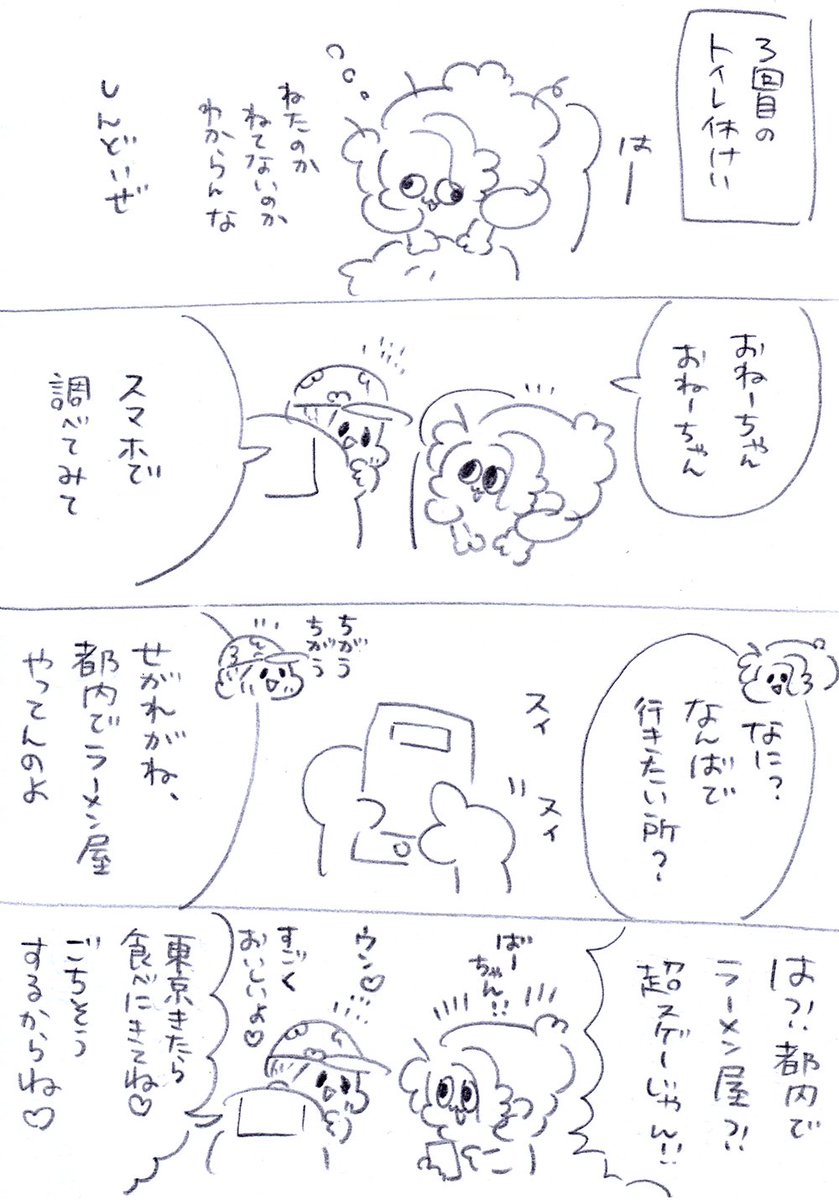 3回目の
トイレ休けい
はー
ねたのか
ねてないのか
わからんな
しんどいぜ
おねーちゃん
おねーちゃん
スマホで
調べてみて
なに?
なんばで
行きたい所?
スィ
スィ
ちがう
ちがう
せがれがね、
都内でラーメン屋
やってんのよ
はっ!!都内で
ラーメン屋?!
超スゲーじゃん!!
ばー
ちゃん!!
ウン♡
すごく
おいしいよ♡
東京きたら
食べにきてね♡
ごちそう
するからね♡